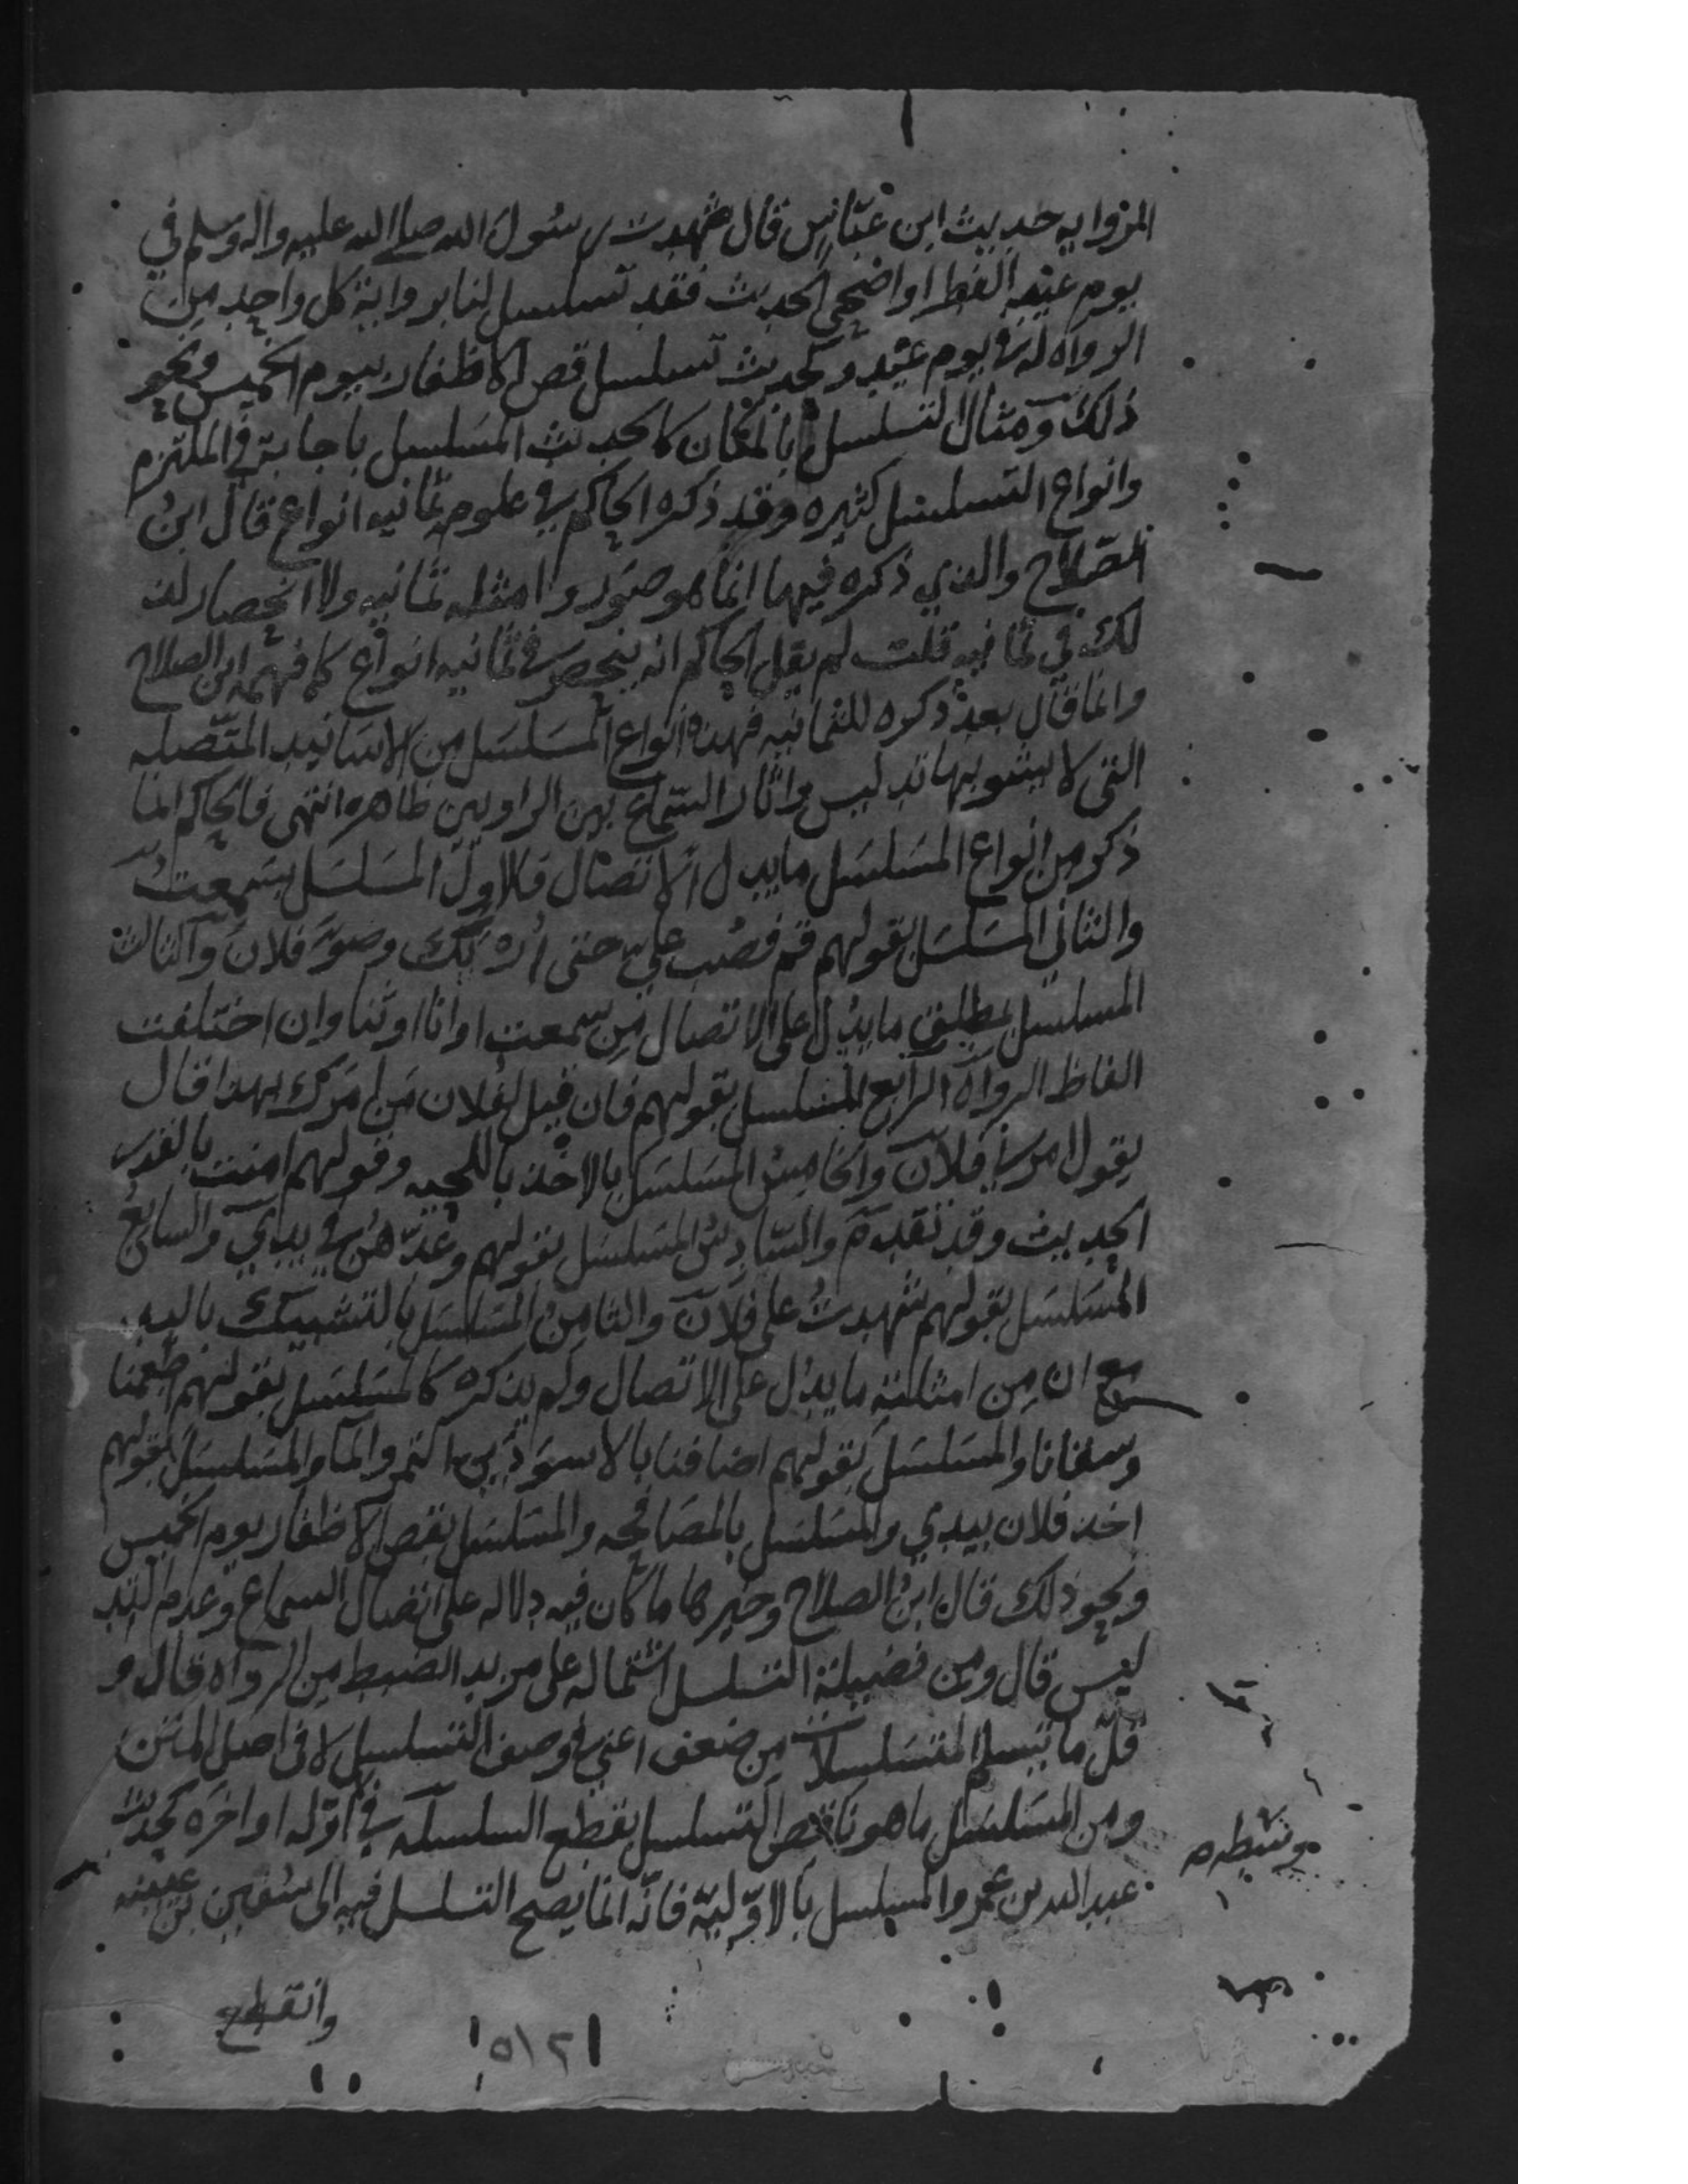 المزوايه حديث ابن عباس قال شهدت رسول الله صلى الله عليه واله وسلم في
يوم عيد الفطر او اضحى الحديث فقد تسلسل لنا برواية كل واحد من
الرواه له في يوم عيد وكحديث تسلسل قص الاظفار بيوم الخميس ونحو
ذلك ومثال التسلسل بالمكان كالحديث المسلسل باجابة في الملتزم
وانواع التسلسل كثيره وقد ذكره الحاكم في علومه ثمانيه انواع قال ابن
الصلاح والذي ذكره فيها انما هو صور وامثله ثمانيه ولا انحصار لذ
لك في ثمانيه قلت لم يقل الحاكم انه ينحصر في ثمانيه انواع كما فهمه ابن الصلاح
وانما قال بعد ذكره للثمانيه فهذه انواع المسلسل من الاسانيد المتصله
التى لا يشوبها تدليس واثار السماع بين الراويين ظاهره انتهى فالحاكم انما
ذكر من انواع المسلسل ما يدل الاتصال فالاول المسلسل بسمعت
والثاني المسلسل بقولهم قم فصب علي حتى اريك وضو فلان والثالث
المسلسل بمطلق ما يدل على الاتصال من سمعت او انا او ثنا وان اختلفت
الفاظ الرواه الرابع المسلسل بقولهم فان قيل لفلان من امرك بهذا قال
يقول امرني فلان والخامس المسلسل بالاخذ باللحيه وقولهم امنت بالقدر
الحديث وقد تقدم والسادس المسلسل بقولهم وعدهن في يدي والسابع
المسلسل بقولهم شهدت على فلان والثامن المسلسل بالتشبيك باليد
مع ان من امثلته ما يدل على الاتصال ولم يذكره كالمسلسل بقولهم اطعمنا
وسقانا والمسلسل بقولهم اضافنا بالاسودين التمر والما والمسلسل بقولهم
اخذ فلان بيدي والمسلسل بالمصافحه والمسلسل بقص الاظفار يوم الخميس
ونحو ذلك قال ابن الصلاح وخيرها ما كان فيه دلاله على اتصال السماع وعدم التد
ليس قال ومن فضيلة التسلسل اشتماله على مزيد الضبط من الرواه قال و
قل ما تسلم المتسلسلات من ضعف اعني في وصف التسلسل لا في اصل المتن
ومن المسلسل ما هو ناقص التسلسل بقطع السلسله في اوله او اخره كحديث
وسطه
عبد الله بن عمرو المسلسل بالاوليه فانه انما يصح التسلسل فيه الى سفين بن عيينه
وانقطع